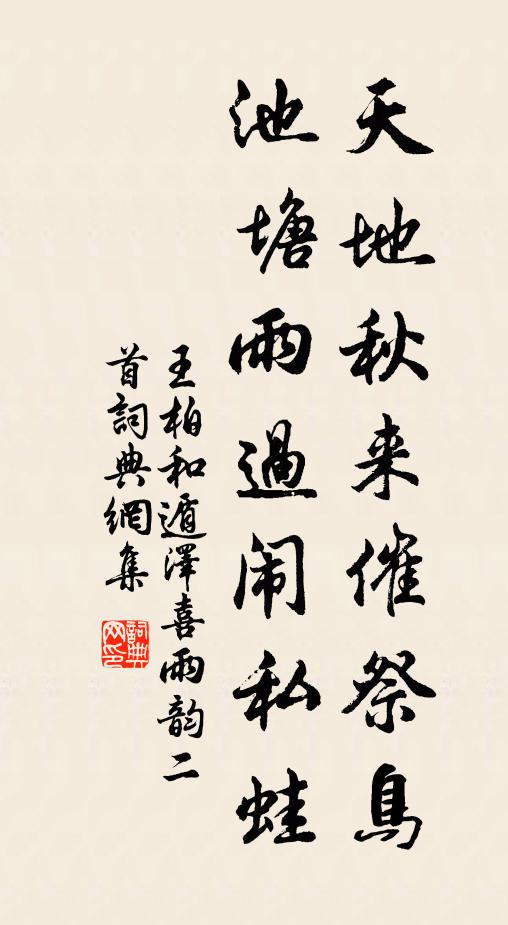 天地秋来催祭鳥
池塘雨過闹私蛙
王柏和遁澤喜雨韵二
首詞典網集
詞典
网印